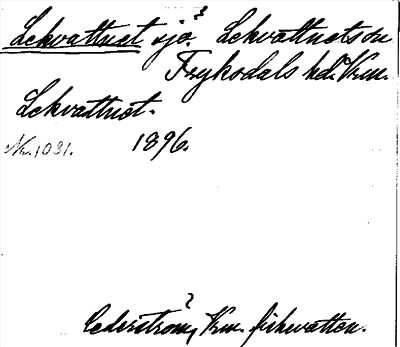 Lekvattnet sjö? Lekvattnets sn
Fryksdals hd. Vrm.
Lekvattnet.
Nr. 1031. 1896.
?
Cederström, Vrm. fiskevatten.